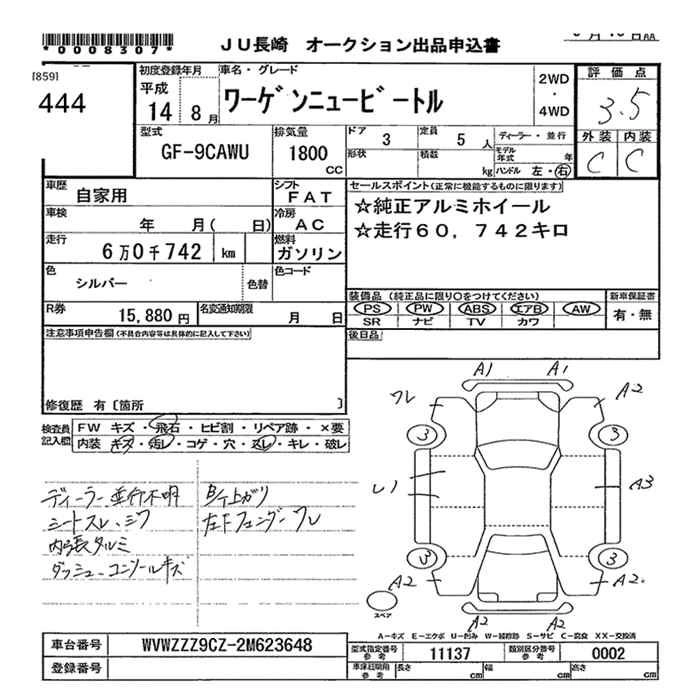 *0008307*
JU長崎 オークション出品申込書
[859]
444
初度登録年月
平成
14 8 月
車名・グレード
ワーゲンニュービートル
2WD
・
4WD
評価点
3.5
外装 内装
C C
型式
GF-9CAWU
排気量
1800
CC
ドア 3
定員 5 人
形状
積数
kg
ディーラー・並行
モデル年式 年
ハンドル 左・右
車歴
自家用
シフト
FAT
車検
年 月( 日)
冷房
AC
走行
6万0千742 km
燃料
ガソリン
色
シルバー
色替
色コード
R券
15,880 円
名変通知期限
月 日
セールスポイント(正常に機能するものに限ります)
☆純正アルミホイール
☆走行60,742キロ
装備品 (純正品に限り○をつけてください)
PS PW ABS エアB AW
SR ナビ TV カワ
新車保証書
有・無
後日品
注意事項申告欄(不具合内容等は具体的に記入して下さい)
修復歴 有〔箇所 〕
検査員
記入欄
FW キズ・飛石・ヒビ割・リペア跡・×要
内装 キズ・汚レ・コゲ・穴・スレ・キレ・破レ
ディーラー並行不明
シートスレ、シワ
内張タルミ
ダッシュ・コンソールキズ
左Fフェンダーワレ
A1 A1
ワレ
A2
3 3
A3
3 3
A2
A2
A2 A2
スペア
A-キズ E-エクボ U-凹み W-補修跡 S-サビ C-腐食 XX-交換済
車台番号 WVWZZZ9CZ-2M623648
登録番号
型式指定番号
参考
11137
類別区分番号
参考
0002
車庫証明用
参考
長さ cm 幅 cm 高さ cm